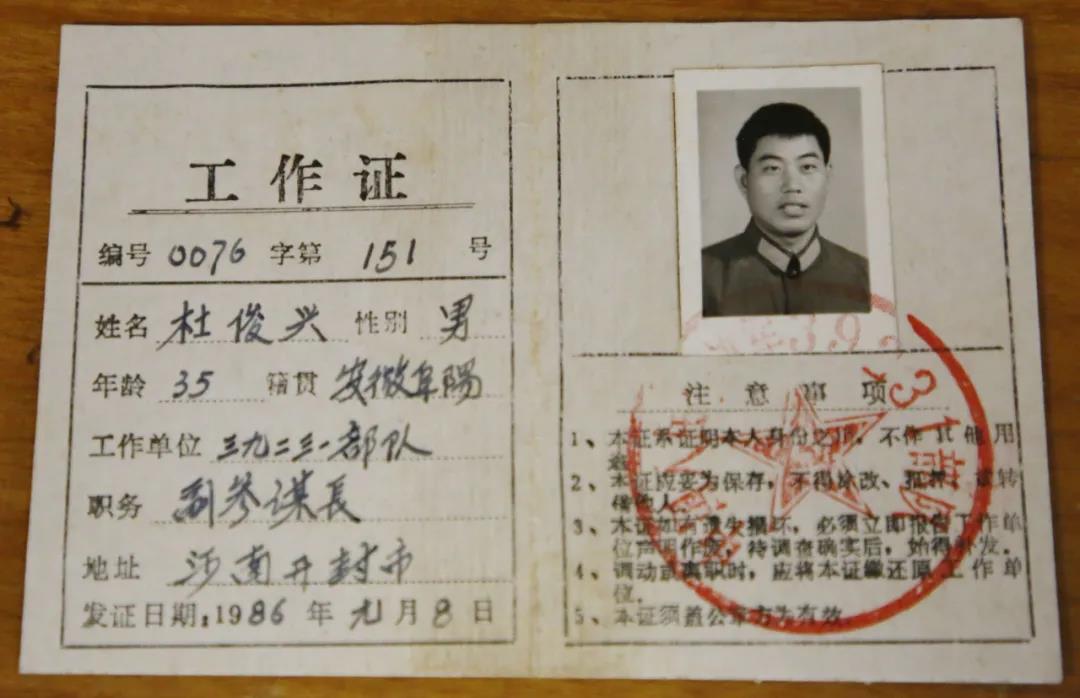 工作证
编号 0076 字第 151 号
姓名 杜俊兴 性别 男
年龄 35 籍贯 安徽阜陽
工作单位 三九二三一部队
职务 副参谋長
地址 河南开封市
发证日期:1986年九月8日
注意事项
1、本证系证明本人身份之用,不作其他用
途。
2、本证应妥为保存,不得涂改、抵押、或转
借他人。
3、本证如有遗失损坏,必须立即报告工作单
位声明作废,待调查确实后,始得补发。
4、调动或离职时,应将本证缴还原工作单
位。
5、本证须盖公章方为有效。